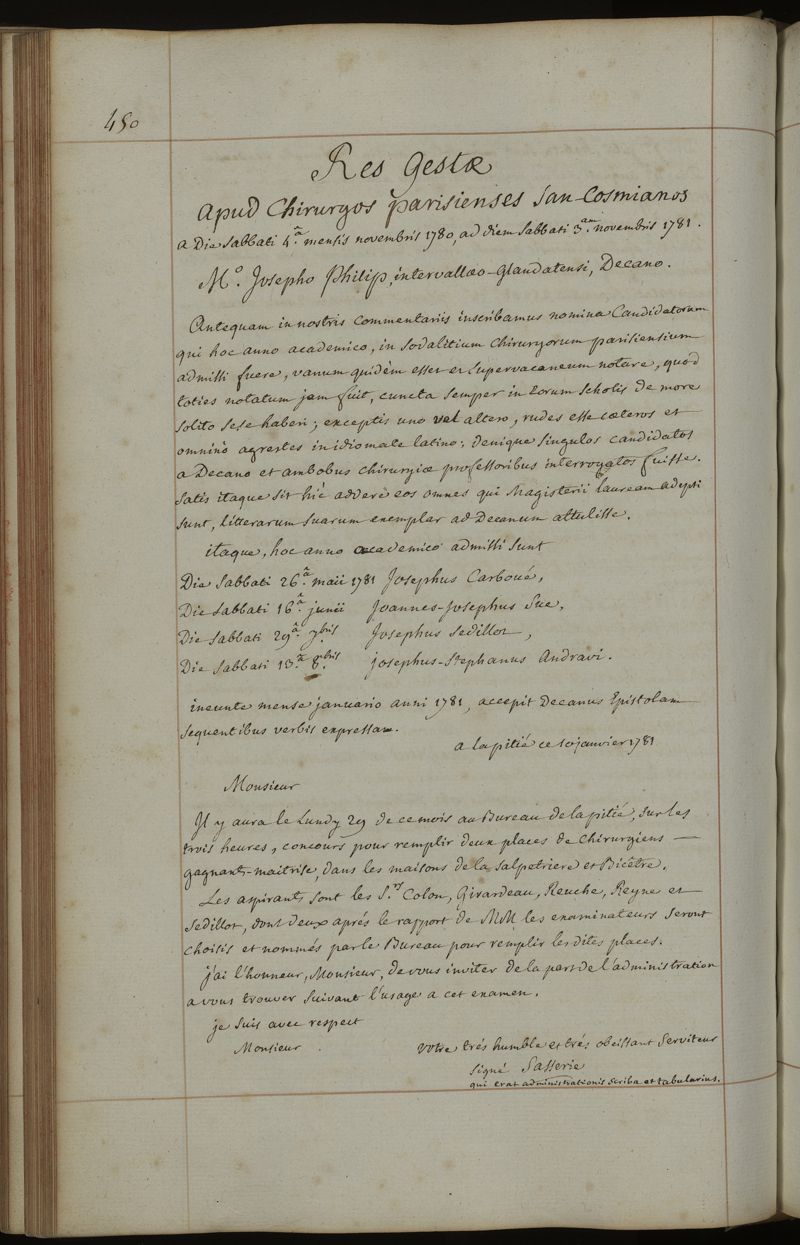 450
Res Gestæ
Apud Chirurgos parisienses San-Cosmianos
a Die Sabbati 4.ª mensis novembris 1780, ad diem Sabbati 3.am novembris 1781.
M.o Josepho Philip, intervallæo-Glandatensi, Decano.
Antequam in nostris commentariis inscribamus nomina Candidatorum
qui hoc anno academico, in Sodalitium Chirurgorum parisiensium
admissi fuere, vanum quidèm esset et Supervacaneum notare, quod
toties notatum jam fuit, cuncta Semper in eorum Scholis De more
Solito Sese haberi; exceptis uno vel altero, rudes esse cæteros et
omninò agrestes in idiomate latino; denique Singulos candidatos
a Decano et ambobus chirurgiæ professoribus interrogatos fuisse.
Satis itaque Sit hìc addere eos omnes qui Magisterii lauream adepti
Sunt, litterarum Suarum exemplar ad Decanum attulisse.
itaque, hoc anno academico admissi Sunt
Die Sabbati 26.ª maii 1781 Josephus Carboué,
Die Sabbati 16.ª junii Joannes-Josephus Sue,
Die Sabbati 29.ª 7.bris Josephus Sedillot,
Die Sabbati 13.ª 8.bris josephus-Stephanus Andravi.
ineunte mense januario anni 1781, accepit Decanus Epistolam
Sequentibus verbis expressam.
a la pitié ce 10 janvier 1781
Monsieur
Il y aura le Lundy 29 de ce mois au Bureau de la pitié, Sur les
trois heures, concours pour remplir deux places de Chirurgiens —
gagnants-maitrise, dans les maisons de la Salpetriere et Bicêtre.
Les aspirants Sont les S.rs Colon, Girardeau, Reuche, Reyne et
Sedillot, dont deux aprés le rapport de MM. les examinateurs Seront
choisis et nommés par le Bureau pour remplir les dites places.
j'ai l'honneur, Monsieur, de vous inviter de la part de l'administration
a vous trouver Suivant l'usage a cet examen.
je Suis avec respect
Monsieur .
votre trés humble et trés obeissant Serviteur
Signé Sasserie
qui erat administrationis Scriba et tabularius.